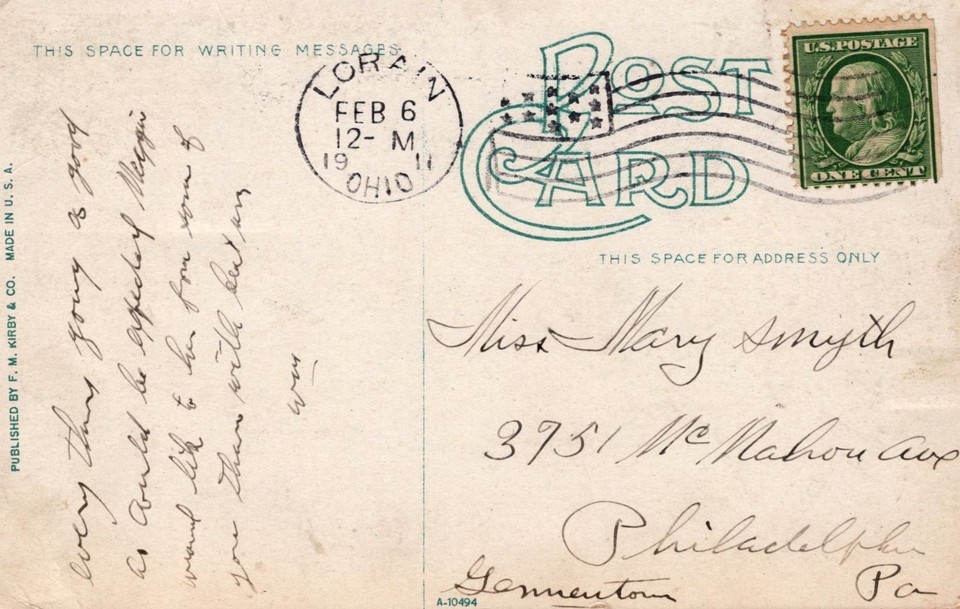 THIS SPACE FOR WRITING MESSAGES
POST
CARD
LORAIN
FEB 6
12- M
19 11
OHIO
U.S. POSTAGE
ONE CENT
THIS SPACE FOR ADDRESS ONLY
every thing going as good
as could be expected Maggie
would like to hear from some of
you there with best
Wm
Miss Mary Smyth
3751 Mc Mahon Ave
Philadelphia
Germentown Pa
PUBLISHED BY F. M. KIRBY & CO. MADE IN U. S. A.
A-10494